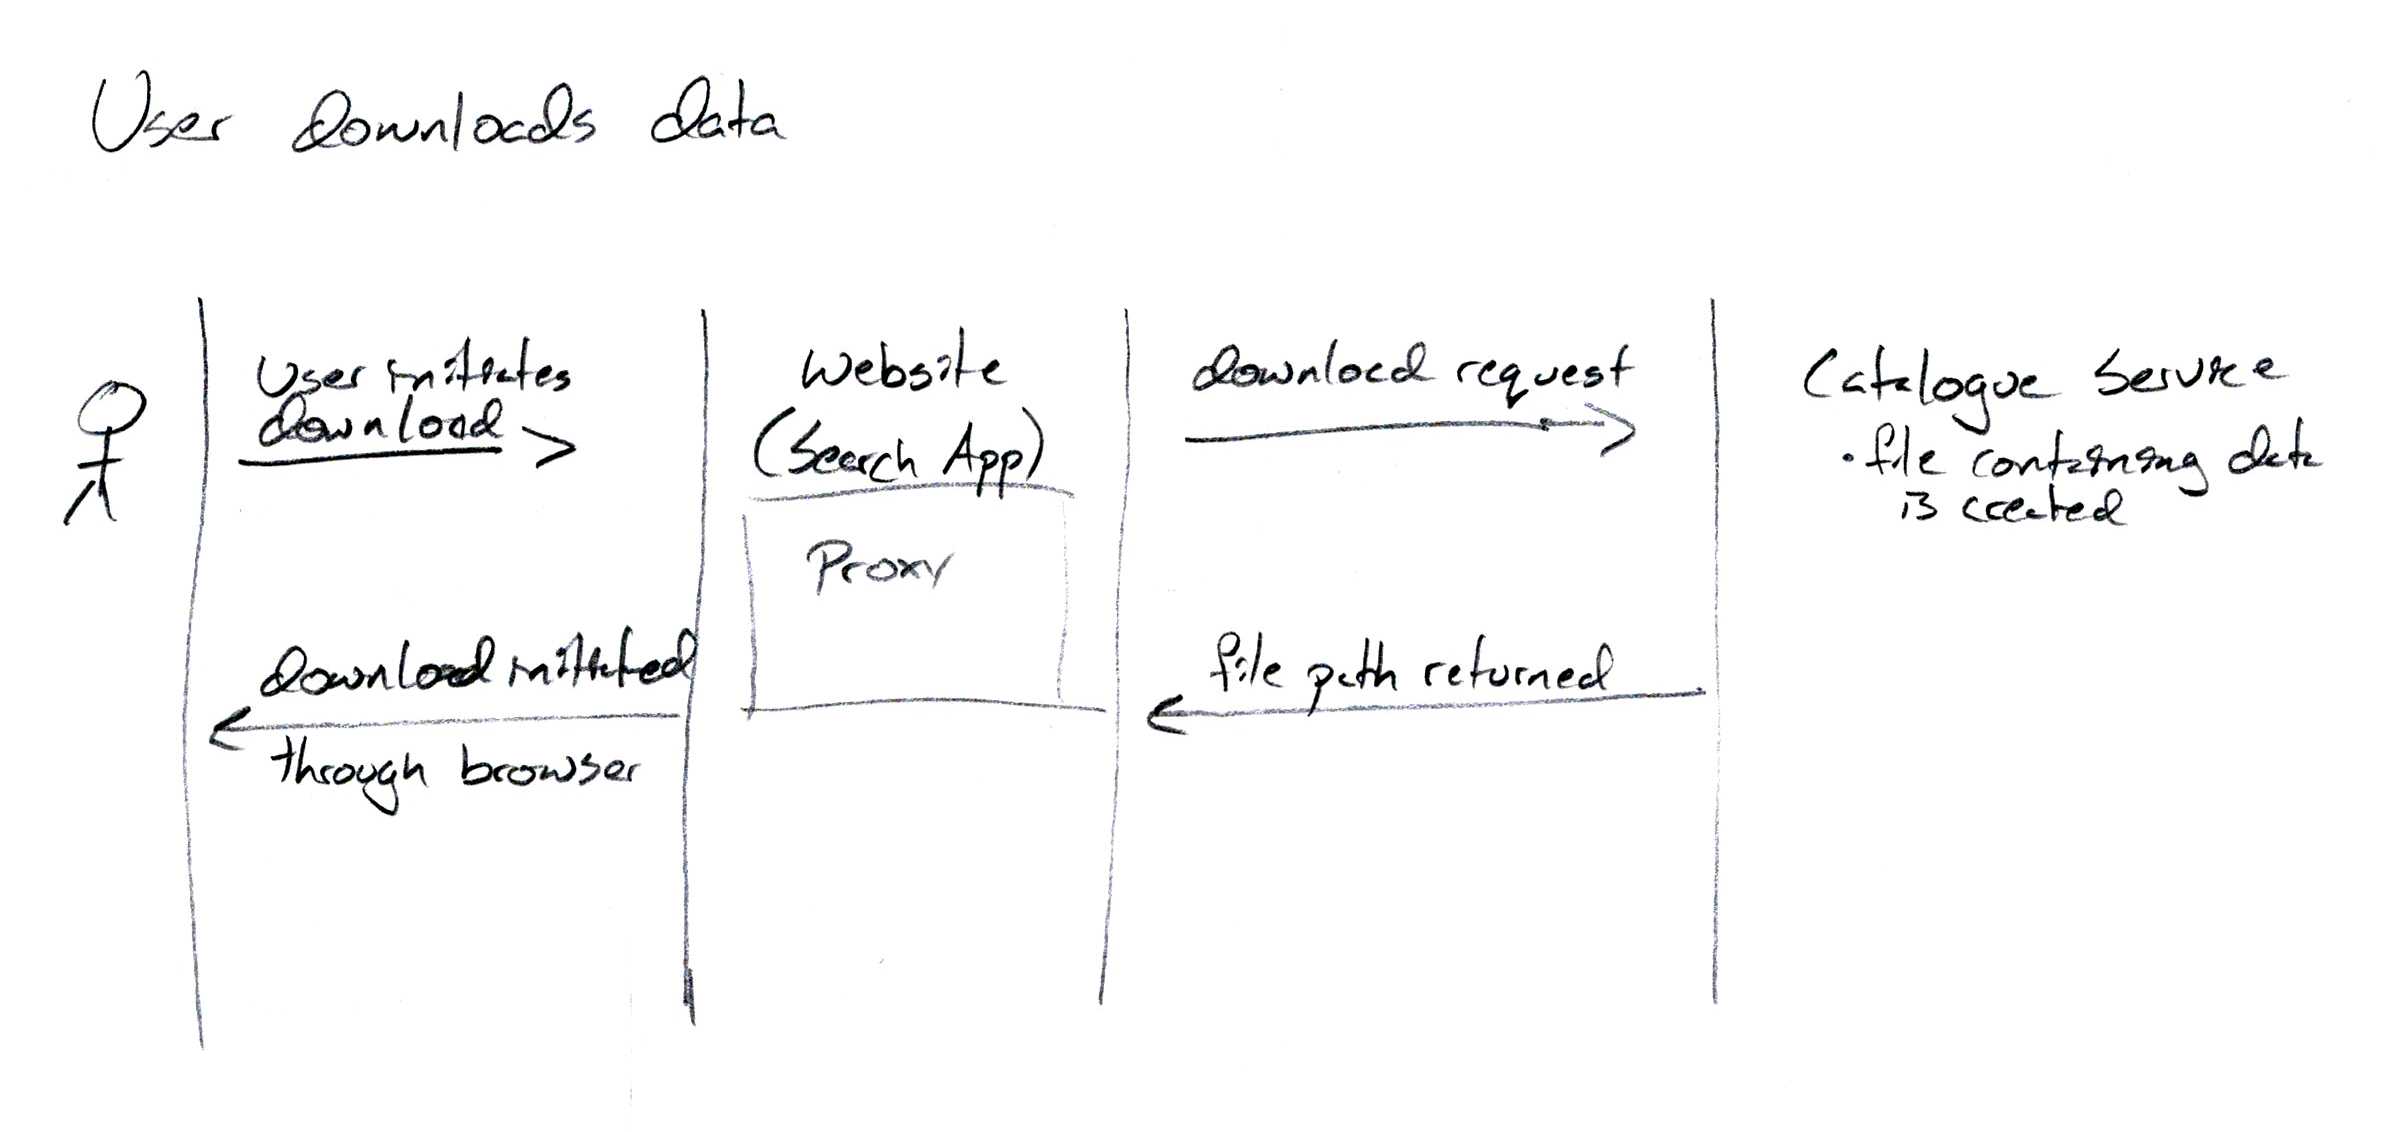 User downloads data
User initiates
download
Website
(Search App)
Proxy
download request
Catalogue Service
• file containing data
is created
file path returned
download initiated
through browser